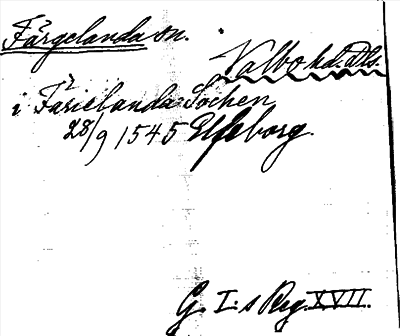 Färgelanda sn.
Valbo hd. Dls.
i Färielanda Sochen
28/9 1545 Elfsborg.
G. I:s Reg. XVII.